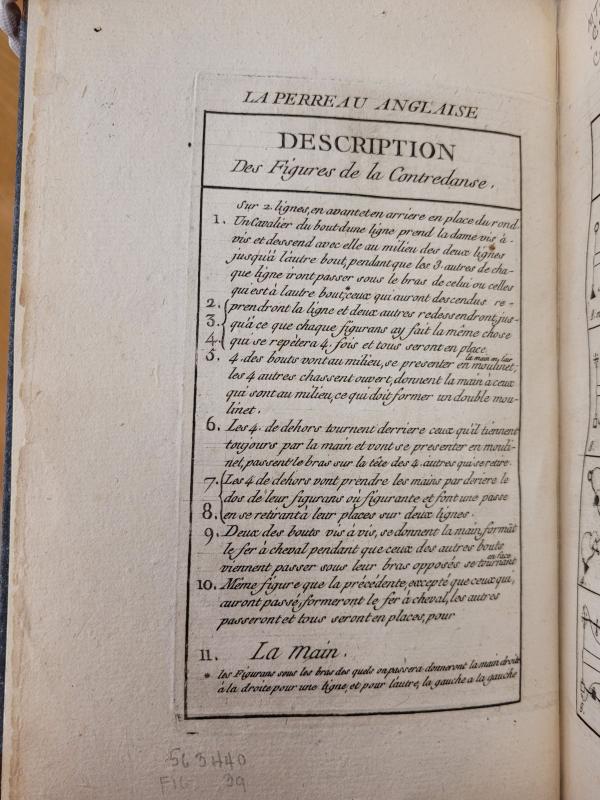 LA PERREAU ANGLAISE
DESCRIPTION
Des Figures de la Contredanse.
Sur 2. lignes, en avant et en arriere en place du rond
1. Un Cavalier du bout d'une ligne prend la dame vis à-
vis et dessend avec elle au milieu des deux lignes
jusqu'à l'autre bout, pendant que les 3. autres de cha-
que ligne iront passer sous le bras de celui ou celles
qui est à l'autre bout,* ceux qui auront descendus re-
2. prendront la ligne et deux autres redessendront, jus-
3. qu'a ce que chaque figurans ay fait la même chose
4. qui se repètera 4. fois et tous seront en place
5. 4. des bouts vont au milieu, se presenter la main en l'air en moulinet;
les 4 autres chassent ouvert, donnent la main à ceux
qui sont au milieu, ce qui doit former un double mou-
linet.
6. Les 4. de dehors tournent derriere ceux qu'il tiennent
toujours par la main et vont se presenter en mouli-
net, passent le bras sur la tête des 4. autres qui se retire.
7. Les 4 de dehors vont prendre les mains par deriere le
dos de leur figurans ou figurante et font une passe
8. en se retirant à leur places sur deux lignes.
9. Deux des bouts vis à vis, se donnent la main, formāt
le fer à cheval pendant que ceux des autres bouts
viennent passer sous leur bras opposés se tournant en face
10. Même figure que la précédente, excepté que ceux qui,
auront passé, formeront le fer à cheval, les autres
passeront et tous seront en places, pour
11. La main.
* les Figurans sous les bras des quels on passera donneront la main droite
à la droite pour une ligne, et pour l'autre, la gauche a la gauche
563440
FIG 39